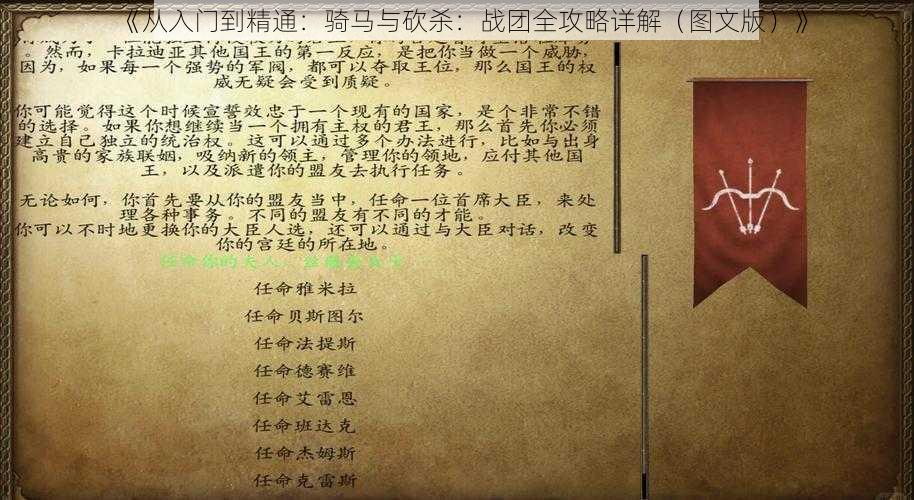 《从入门到精通：骑马与砍杀：战团全攻略详解（图文版）》
。然而，卡拉迪亚其他国王的第一反应，是把你当做一个威胁，
因为，如果每一个强势的军阀，都可以夺取王位，那么国王的权
威无疑会受到质疑。
你可能觉得这个时候宣誓效忠于一个现有的国家，是个非常不错
的选择。如果你想继续当一个拥有主权的君王，那么首先你必须
建立自己独立的统治权。这可以通过多个办法进行，比如与出身
高贵的家族联姻，吸纳新的领主，管理你的领地，应付其他国
王，以及派遣你的盟友去执行任务。
无论如何，你首先要从你的盟友当中，任命一位首席大臣，来处
理各种事务。不同的盟友有不同的才能。
你可以不时地更换你的大臣人选，还可以通过与大臣对话，改变
你的宫廷的所在地。
任命你的夫人，
任命雅米拉
任命贝斯图尔
任命法提斯
任命德赛维
任命艾雷恩
任命班达克
任命杰姆斯
任命克雷斯